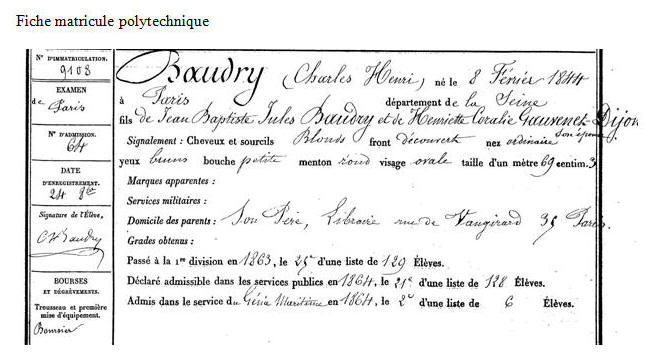 Fiche matricule polytechnique
N° D'IMMATRICULATION.
9108
EXAMEN
de Paris
N° D'ADMISSION.
64
DATE
D'ENREGISTREMENT.
24 8bre
Signature de l'Élève,
CH Baudry
BOURSES
ET DÉGRÈVEMENTS.
Trousseau et première
mise d'équipement.
Boursier
Baudry (Charles Henri) né le 8 Février 1844
à Paris département de la Seine
fils de Jean Baptiste Jules Baudry et de Henriette Coralie Gauvenet-Dijon
son épouse
Signalement : Cheveux et sourcils Blonds front découvert nez ordinaire
yeux bruns bouche petite menton rond visage ovale taille d'un mètre 69 centim. 3
Marques apparentes :
Services militaires :
Domicile des parents : Son Père, Libraire rue de Vaugirard 35 Paris.
Grades obtenus :
Passé à la 1re division en 1863, le 25e d'une liste de 129 Élèves.
Déclaré admissible dans les services publics en 1864, le 21e d'une liste de 128 Élèves.
Admis dans le service du Génie Maritime en 1864, le 2e d'une liste de 6 Élèves.